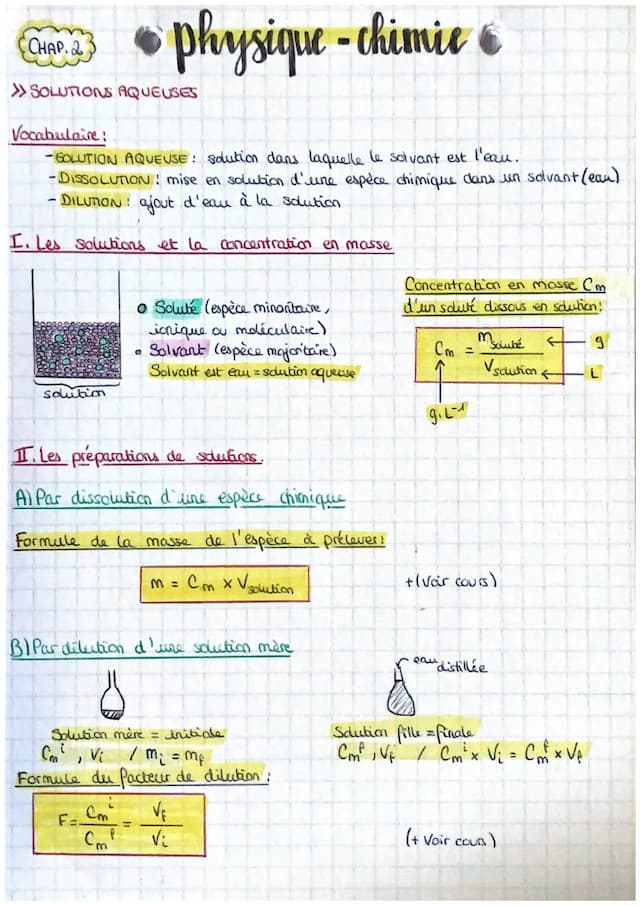 CHAP. 2
physique-chimie
>> SOLUTIONS AQUEUSES
Vocabulaire :
- SOLUTION AQUEUSE : solution dans laquelle le solvant est l'eau.
- DISSOLUTION : mise en solution d'une espèce chimique dans un solvant (eau)
- DILUTION : ajout d'eau à la solution
I. Les solutions et la concentration en masse
Soluté (espèce minoritaire,
ionique ou moléculaire)
Solvant (espèce majoritaire)
Solvant est eau = solution aqueuse
solution
Concentration en masse Cm
d'un soluté dissous en solution :
Cm = msoluté / Vsolution
g
L
g.L⁻¹
II. Les préparations de solutions.
A) Par dissolution d'une espèce chimique
Formule de la masse de l'espèce à prélever :
m = Cm x Vsolution
+ (Voir cours)
B) Par dilution d'une solution mère
eau distillée
Solution mère = initiale
Cmⁱ, Vi / mi = mf
Solution fille = finale
Cmᶠ, Vf / Cmⁱ x Vi = Cmᶠ x Vf
Formule du facteur de dilution :
F = Cmⁱ / Cmᶠ = Vf / Vi
(+ Voir cours)